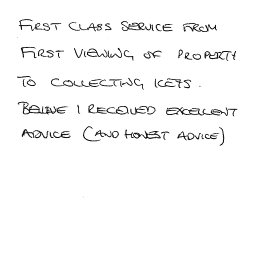 FIRST CLASS SERVICE FROM
FIRST VIEWING OF PROPERTY
TO COLLECTING KEYS.
BELIEVE I RECEIVED EXCELLENT
ADVICE (AND HONEST ADVICE)